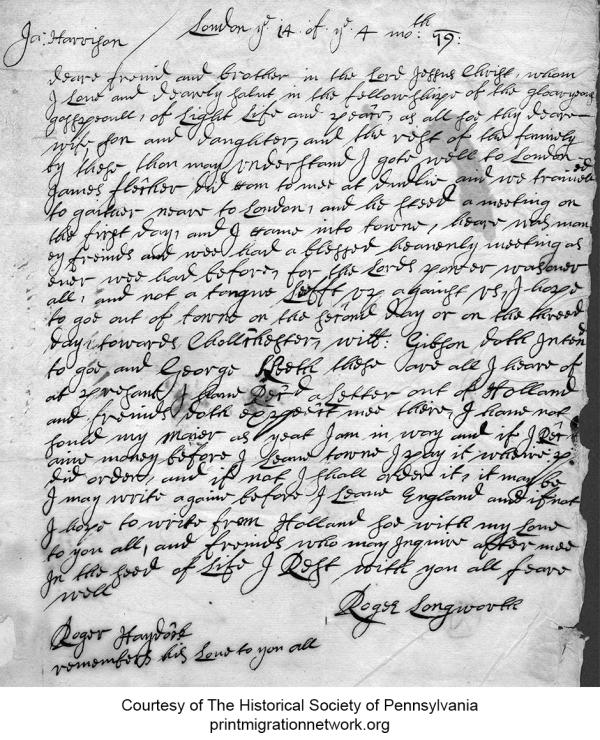 Ja: Harrison
London ye 14 of ye 4 mo:th 79:
deare freind and brother in the Lord Jessus Christ, whom
I Love and dearely salut in the fellowshipe of the
of Light Life and as all soe thy deare
wife son and daughter, and the rest of the famely
by these thou may understand I gote well to London
James flecher did Com to mee at and we
to gaither neare to London, and he steed a meeting on
the first day, and I Came into towne, heare was man
ey freinds and wee had a blessed heavenly meeting as
ever wee had before, for the Lords power was over
all, and not a tongue Lefft up against us, I hope
to goe out of towne on the second day or on the threed
day, towards Chollchester, will: Gibson doth Inten
to goe, and George these are all I heare of
at I have a Letter out of Holland
and freinds doth mee there, I have not
sould my as yeat I am in way and if I Re
aive money before I Leave towne I pay it where
did order, and if not I shall order it, it may be
I may write againe before I Leave England and if not
I hope to write from Holland soe with my Love
to you all, and freinds who may Inquire after mee
In the seed of Life I Rest with you all feare
well
Roger Longworth
Roger Haydock
remembers his Love to you all
Courtesy of The Historical Society of Pennsylvania
printmigrationnetwork.org